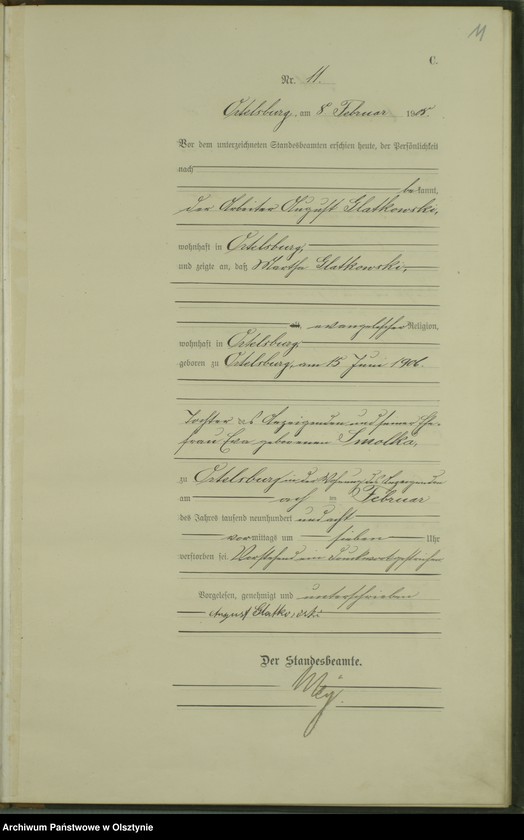 11
C.
Nr. 11
Ortelsburg, am 8 Februar 1908.
Vor dem unterzeichneten Standesbeamten erschien heute, der Persönlichkeit
nach
be kannt,
der Arbeiter August Glatkowski,
wohnhaft in Ortelsburg,
und zeigte an, daß Martha Glatkowski,
evangelischer Religion,
wohnhaft in Ortelsburg
geboren zu Ortelsburg, am 15 Juni 1906.
Tochter des Anzeigenden und seiner Ehe-
frau Eva geborenen Smolka,
zu Ortelsburg in der Wohnung des Anzeigenden
am acht Februar
des Jahres tausend neunhundert und acht
vormittags um sieben Uhr
verstorben sei. Vorstehend ein Druckwort gestrichen
Vorgelesen, genehmigt und unterschrieben
August Glatkowski
Der Standesbeamte.
Archiwum Państwowe w Olsztynie